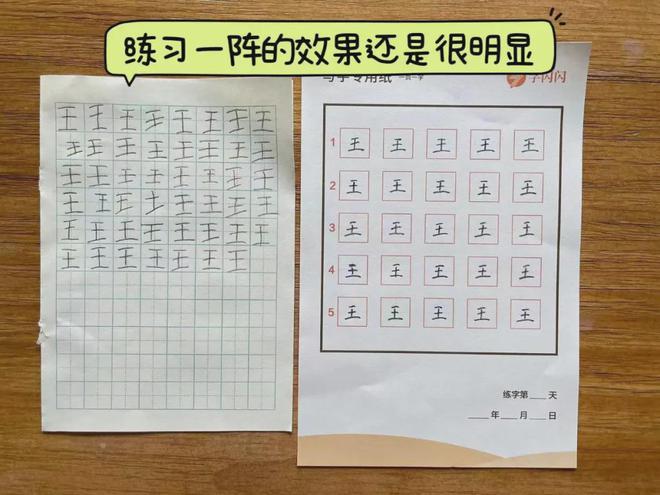 练习一阵的效果还是很明显
写字专用纸
字闪闪
王 王 王 王 王 王 王 王
王 王 王 王 王 王 王 王
王 王 王 王 王 王 王 王
王 王 王 王 王 王 王 王
王 王 王 王 王 王 王 王
王 王 王 王 王 王 王
1 王 王 王 王 王
2 王 王 王 王 王
3 王 王 王 王 王
4 王 王 王 王 王
5 王 王 王 王 王
练字第____天
____年____月____日